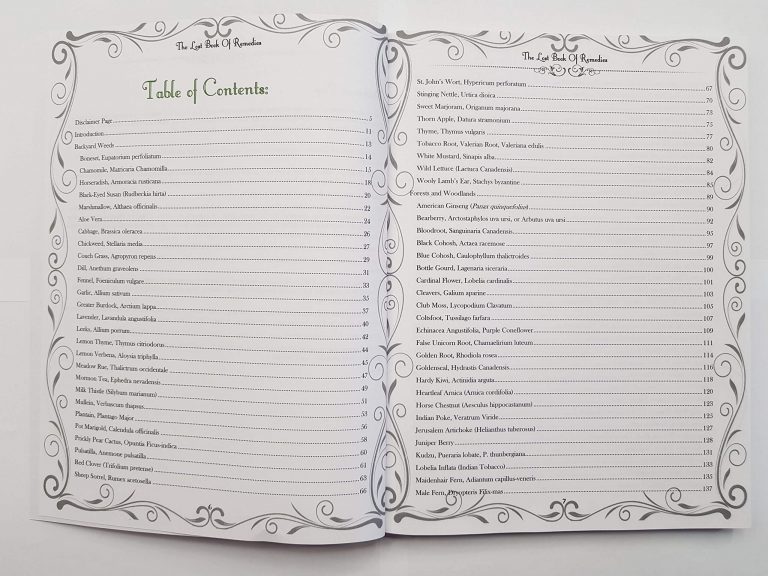 The Lost Book Of Remedies
Table of Contents:
Disclaimer Page 5
Introduction 11
Backyard Weeds 13
Boneset, Eupatorium perfoliatum 14
Chamomile, Matricaria Chamomilla 15
Horseradish, Armoracia rusticana 18
Black-Eyed Susan (Rudbeckia hirta) 20
Marshmallow, Althaea officinalis 22
Aloe Vera 24
Cabbage, Brassica oleracea 26
Chickweed, Stellaria media 27
Couch Grass, Agropyron repens 29
Dill, Anethum graveolens 31
Fennel, Foeniculum vulgare 33
Garlic, Allium sativum 35
Greater Burdock, Arctium lappa 37
Lavender, Lavandula angustifolia 40
Leeks, Allium porrum 42
Lemon Thyme, Thymus citriodorus 44
Lemon Verbena, Aloysia triphylla 45
Meadow Rue, Thalictrum occidentale 47
Mormon Tea, Ephedra nevadensis 49
Milk Thistle (Silybum marianum) 51
Mullein, Verbascum thapsus 53
Plantain, Plantago Major 56
Pot Marigold, Calendula officinalis 58
Prickly Pear Cactus, Opuntia Ficus-indica 60
Pulsatilla, Anemone pulsatilla 61
Red Clover (Trifolium pretense) 63
Sheep Sorrel, Rumex acetosella 66
The Lost Book Of Remedies
St. John's Wort, Hypericum perforatum 67
Stinging Nettle, Urtica dioica 70
Sweet Marjoram, Origanum majorana 73
Thorn Apple, Datura stramonium 75
Thyme, Thymus vulgaris 77
Tobacco Root, Valerian Root, Valeriana edulis 80
White Mustard, Sinapis alba 82
Wild Lettuce (Lactuca Canadensis) 84
Wooly Lamb's Ear, Stachys byzantine 85
Forests and Woodlands 89
American Ginseng (Panax quinquefolius) 90
Bearberry, Arctostaphylos uva ursi, or Arbutus uva ursi 92
Bloodroot, Sanguinaria Canadensis 95
Black Cohosh, Actaea racemose 97
Blue Cohosh, Caulophyllum thalictroides 99
Bottle Gourd, Lagenaria siceraria 100
Cardinal Flower, Lobelia cardinalis 101
Cleavers, Galium aparine 103
Club Moss, Lycopodium Clavatum 105
Coltsfoot, Tussilago farfara 107
Echinacea Angustifolia, Purple Coneflower 109
False Unicorn Root, Chamaelirium luteum 111
Golden Root, Rhodiola rosea 114
Goldenseal, Hydrastis Canadensis 116
Hardy Kiwi, Actinidia arguta 118
Heartleaf Arnica (Arnica cordifolia) 120
Horse Chestnut (Aesculus hippocastanum) 123
Indian Poke, Veratrum Viride 125
Jerusalem Artichoke (Helianthus tuberosus) 127
Juniper Berry 128
Kudzu, Pueraria lobate, P. thunbergiana 131
Lobelia Inflata (Indian Tobacco) 133
Maidenhair Fern, Adiantum capillus-veneris 135
Male Fern, Dryopteris Filix-mas 137
7